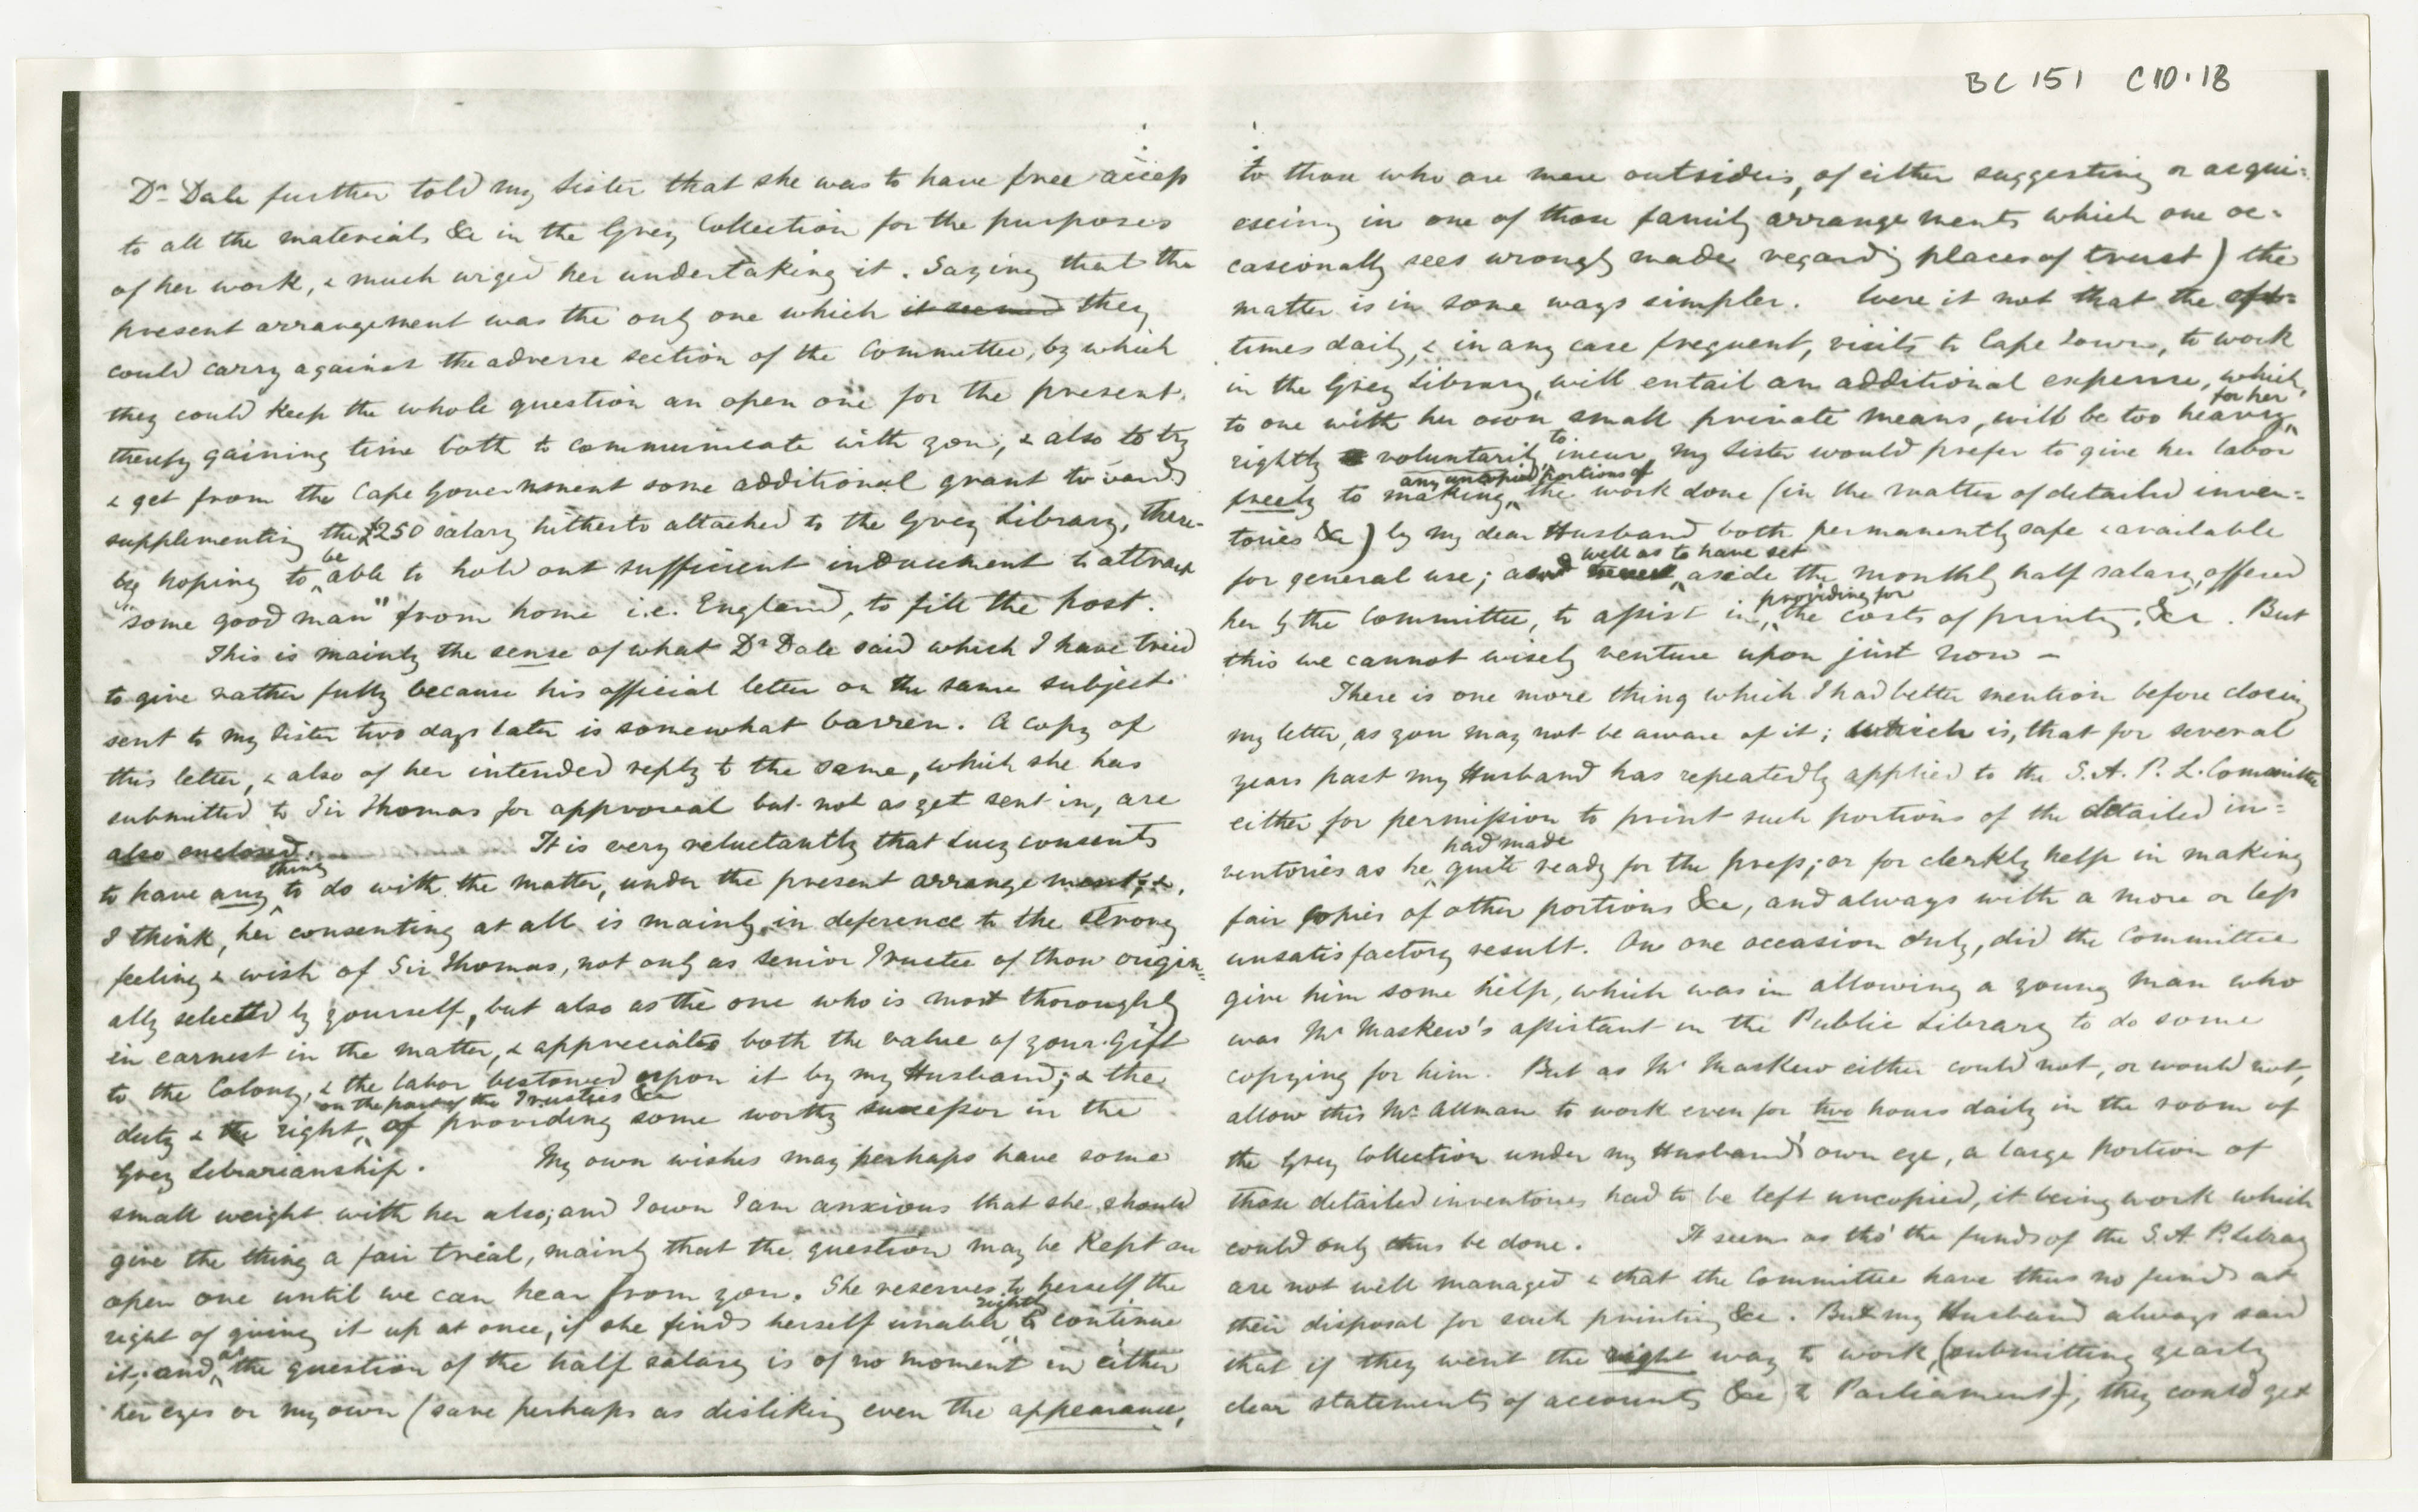 BC 151 C10.18
Dr Dale further told my Sister that she was to have free access
to all the materials &c in the Grey Collection for the purposes
of her work, & much urged her undertaking it. Saying that the
present arrangement was the only one which it seemed they
could carry against the adverse section of the Committee, by which
they could keep the whole question an open one for the present.
thereby gaining time both to communicate with you, & also to try
& get from the Cape Government some additional grant towards
supplementing the £250 salary hitherto attached to the Grey Library, there-
by hoping to be able to hold out sufficient inducement to attract
"some good man" from home i.e. England, to fill the post.
This is mainly the sense of what Dr Dale said which I have tried
to give rather fully because his official letter on the same subject
sent to my Sister two days later is somewhat barren. A copy of
this letter, & also of her intended reply to the same, which she has
submitted to Sir Thomas for approval but not as yet sent in, are
also enclosed. It is very reluctantly that Lucy consents
to have any thing to do with the matter, under the present arrangement, &,
I think, her consenting at all is mainly in deference to the strong
feeling & wish of Sir Thomas, not only as senior Trustee of those origin=
ally selected by yourself, but also as the one who is most thoroughly
in earnest in the matter, & appreciates both the value of your Gift
to the Colony, & the labor bestowed upon it by my Husband; & the
duty & the right, on the part of the Trustees &c of providing some worthy successor in the
Grey Librarianship. My own wishes may perhaps have some
small weight with her also; and I own I am anxious that she should
give the thing a fair trial, mainly that the question may be kept an
open one until we can hear from you. She reserves to herself the
right of giving it up at once, if she finds herself unable rightly to continue
it; and, as the question of the half salary is of no moment in either
her eyes or my own (save perhaps as disliking even the appearance,
to those who are mere outsiders, of either suggesting or acqui=
escing in one of those family arrangements which one oc=
casionally sees wrongly made regardg places of trust) the
matter is in some ways simpler. Were it not that the oft=
times daily, & in any case frequent, visits to Cape Town, to work
in the Grey Library, will entail an additional expense, which,
to one with her own small private means, will be too heavy for her
rightly voluntarily to incur, my Sister would prefer to give her labor
freely to making any uncopied portions of the work done (in the matter of detailed inven=
tories &c) by my dear Husband both permanently safe & available
for general use; as well as to have set aside the monthly half salary, offered
her by the Committee, to assist in providing for the costs of printing, &c. But
this we cannot wisely venture upon just now –
There is one more thing which I had better mention before closing
my letter, as you may not be aware of it; which is, that for several
years past my Husband has repeatedly applied to the S.A.P.L. Committee
either for permission to print such portions of the detailed in=
ventories as he had made quite ready for the press; or for clerkly help in making
fair copies of other portions &c, and always with a more or less
unsatisfactory result. On one occasion only, did the Committee
give him some help, which was in allowing a young man who
was Mr Maskew's assistant in the Public Library to do some
copying for him. But as Mr Maskew either could not, or would not,
allow this Mr Allman to work even for two hours daily in the room of
the Grey Collection under my Husband's own eye, a large portion of
those detailed inventories had to be left uncopied, it being work which
could only thus be done. It seems as tho' the funds of the S.A. P. Library
are not well managed & that the Committee have thus no funds at
their disposal for such printing &c. But my Husband always said
that if they went the right way to work, (submitting yearly
clear statements of accounts &c to Parliament), they could get